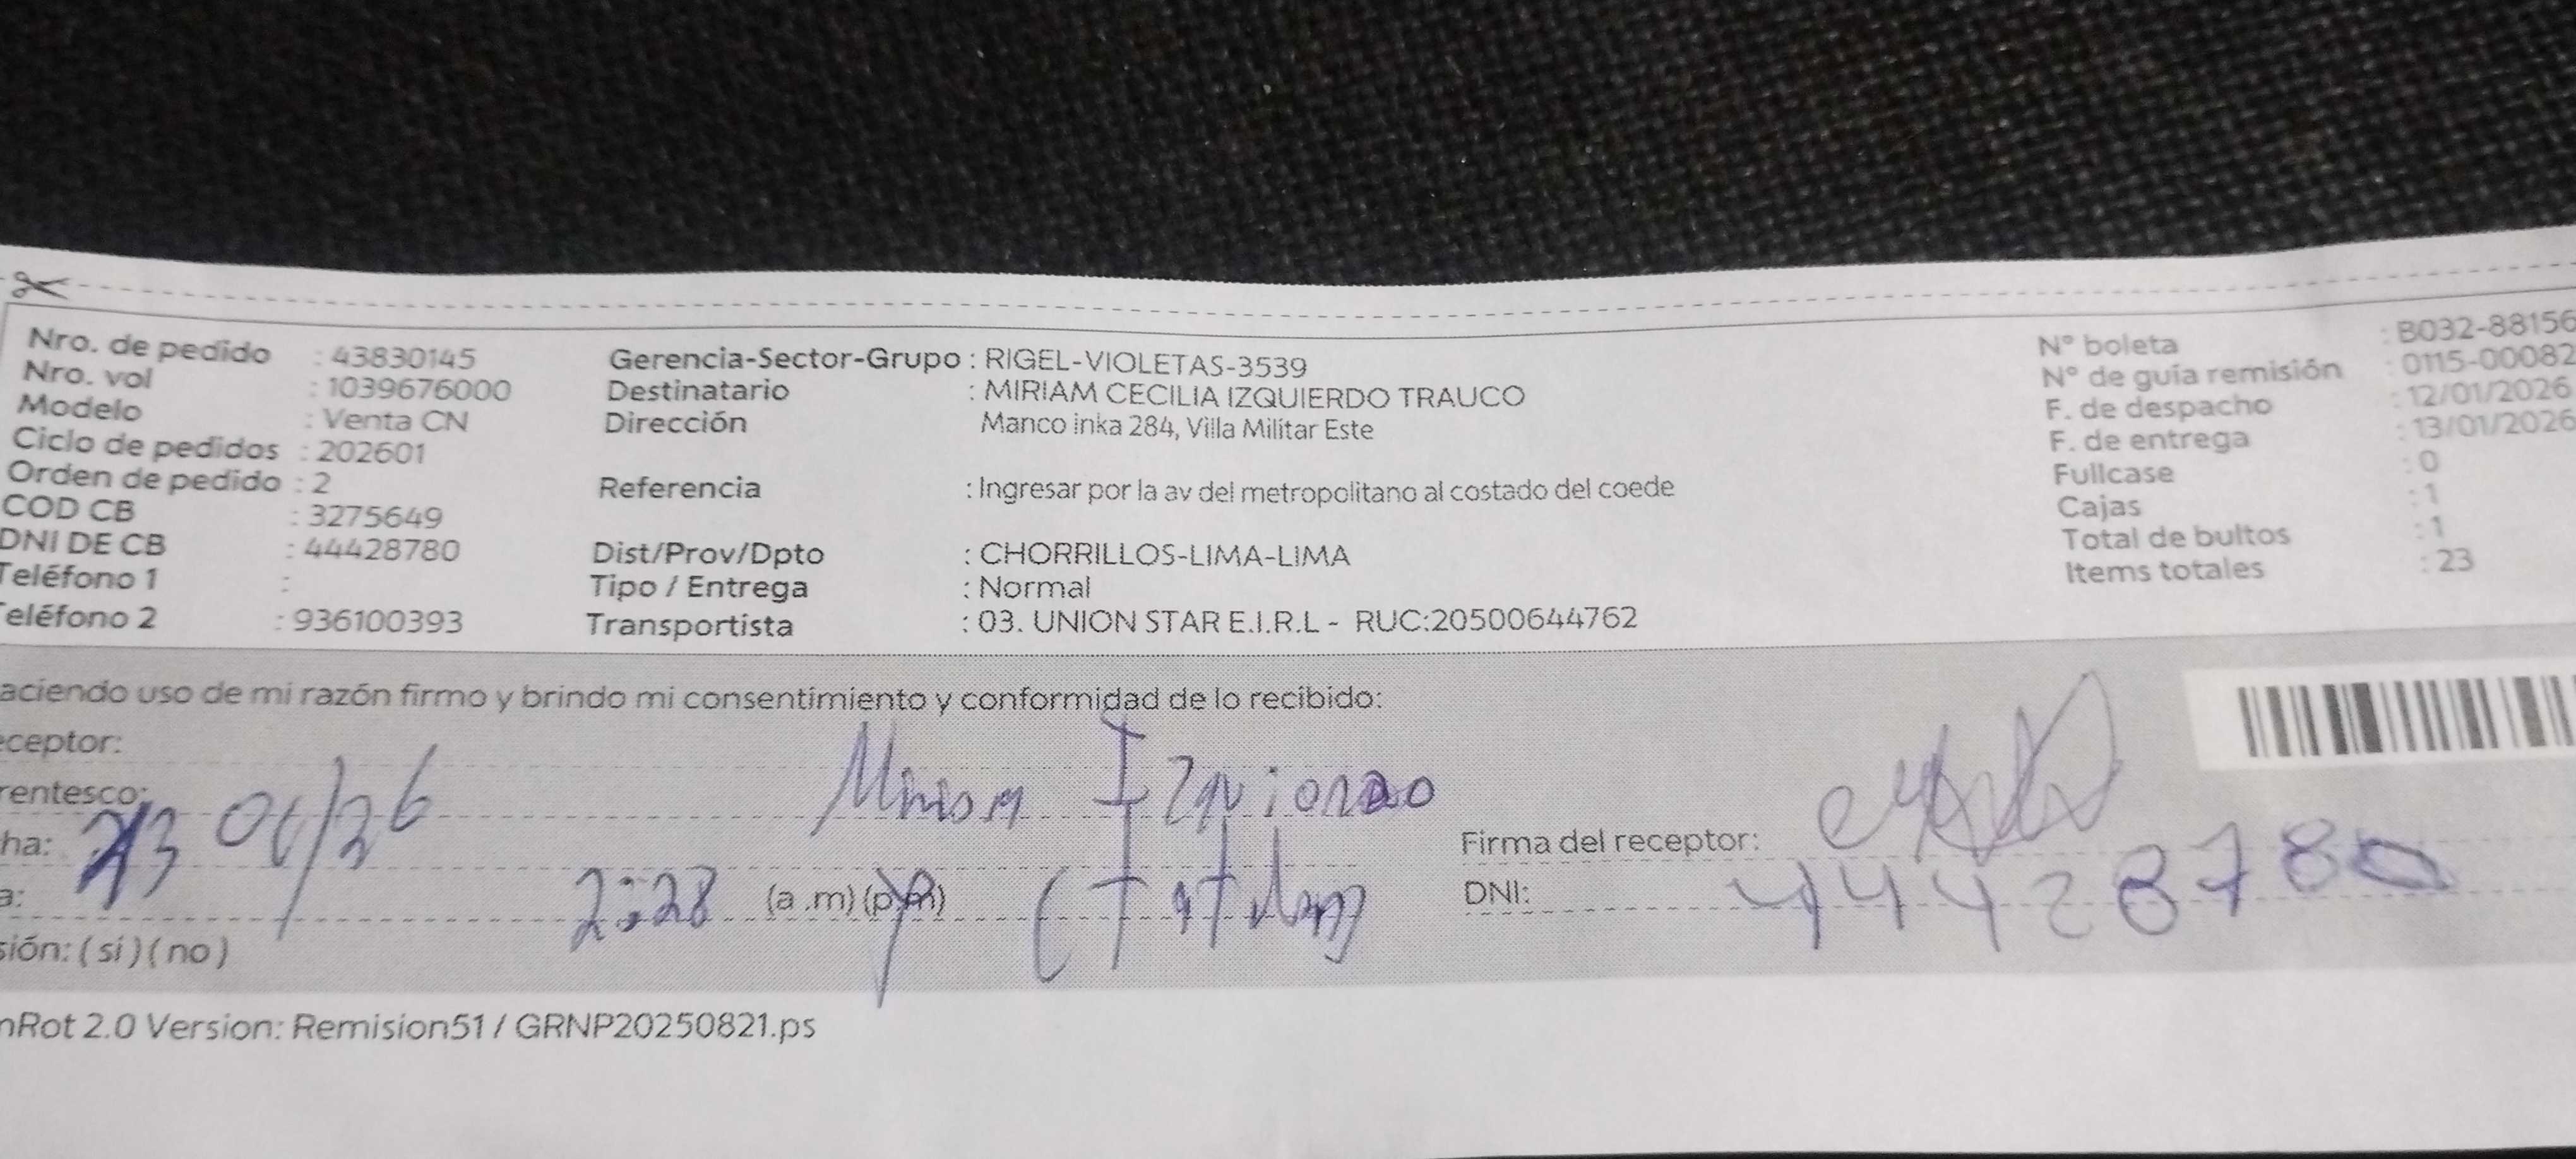 Nro. de pedido : 43830145
Nro. vol : 1039676000
Modelo : Venta CN
Ciclo de pedidos : 202601
Orden de pedido : 2
COD CB : 3275649
DNI DE CB : 44428780
Teléfono 1 :
eléfono 2 : 936100393
Gerencia-Sector-Grupo : RIGEL-VIOLETAS-3539
Destinatario : MIRIAM CECILIA IZQUIERDO TRAUCO
Dirección Manco inka 284, Villa Militar Este
Referencia : Ingresar por la av del metropolitano al costado del coede
Dist/Prov/Dpto : CHORRILLOS-LIMA-LIMA
Tipo / Entrega : Normal
Transportista : 03. UNION STAR E.I.R.L - RUC:20500644762
N° boleta : B032-88156
N° de guía remisión : 0115-00082
F. de despacho : 12/01/2026
F. de entrega : 13/01/2026
Fullcase : 0
Cajas : 1
Total de bultos : 1
Items totales : 23
aciendo uso de mi razón firmo y brindo mi consentimiento y conformidad de lo recibido:
eceptor:
rentesco:
ha: 13 01/26
a: 2:28 (a .m) (p.m)
sión: ( si ) ( no )
Firma del receptor:
DNI: 44428780
nRot 2.0 Version: Remision51 / GRNP20250821.ps